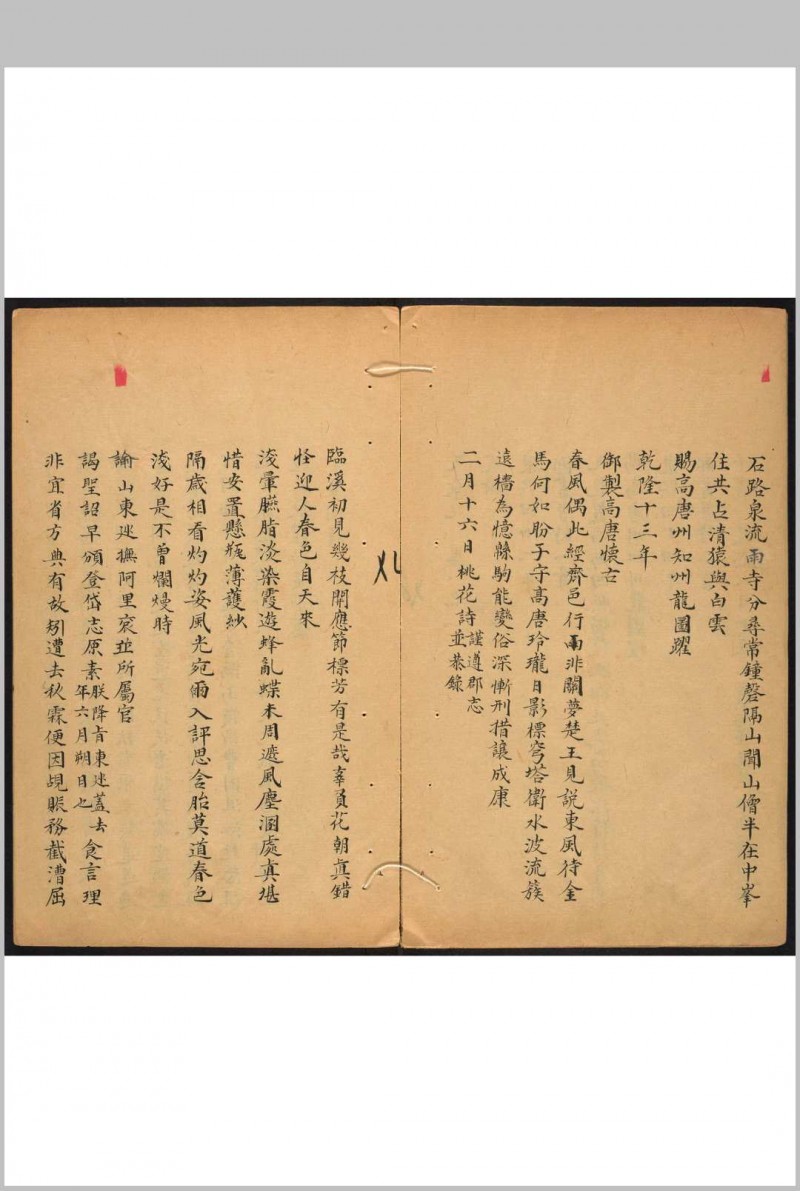 石路泉流兩寺分尋常鐘磬隔山聞山僧半在中峯
住共占清猿與白雲
賜高唐州知州龍圖躍
乾隆十三年
御製高唐懷古
春風偶此經齊邑行雨非關夢楚王見說東風待金
馬何如盼子守高唐玲瓏日影標穹塔衛水波流簇
遠檣為憶緜駒能變俗深慚刑措讓成康
二月十六日桃花詩謹遵郡志
並恭錄
臨溪初見幾枝開應節標芳有是哉辜負花朝真錯
怪迎人春色自天來
淺暈臙脂淡染霞遊蜂亂蝶未周遮風塵溷處真堪
惜安置懸瓶薄護紗
隔歲相看灼灼姿風光宛爾入評思含胎莫道春色
淺好是不曾爛熳時
諭山東廵撫阿里衮並所屬官
謁聖詔早頒登岱志原素朕降旨東廵蓋去
年六月朔日也食言理
非宜省方典有故矧遭去秋霖便因覘賑務截漕屈